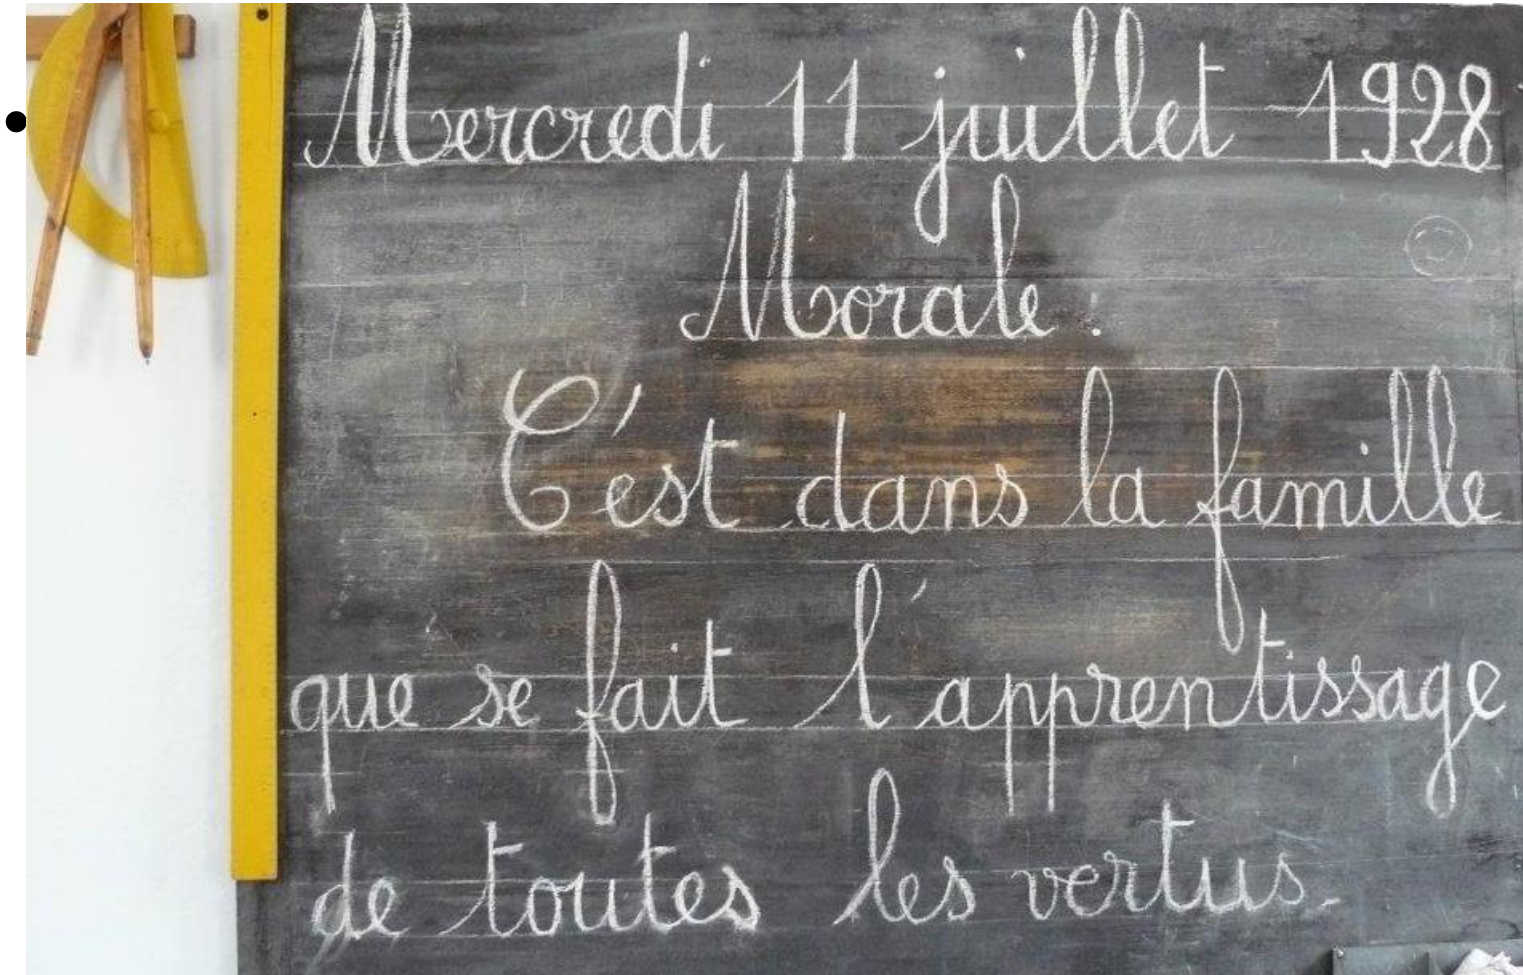 Mercredi 11 juillet 1928
Morale.
C'est dans la famille
que se fait l'apprentissage
de toutes les vertus.